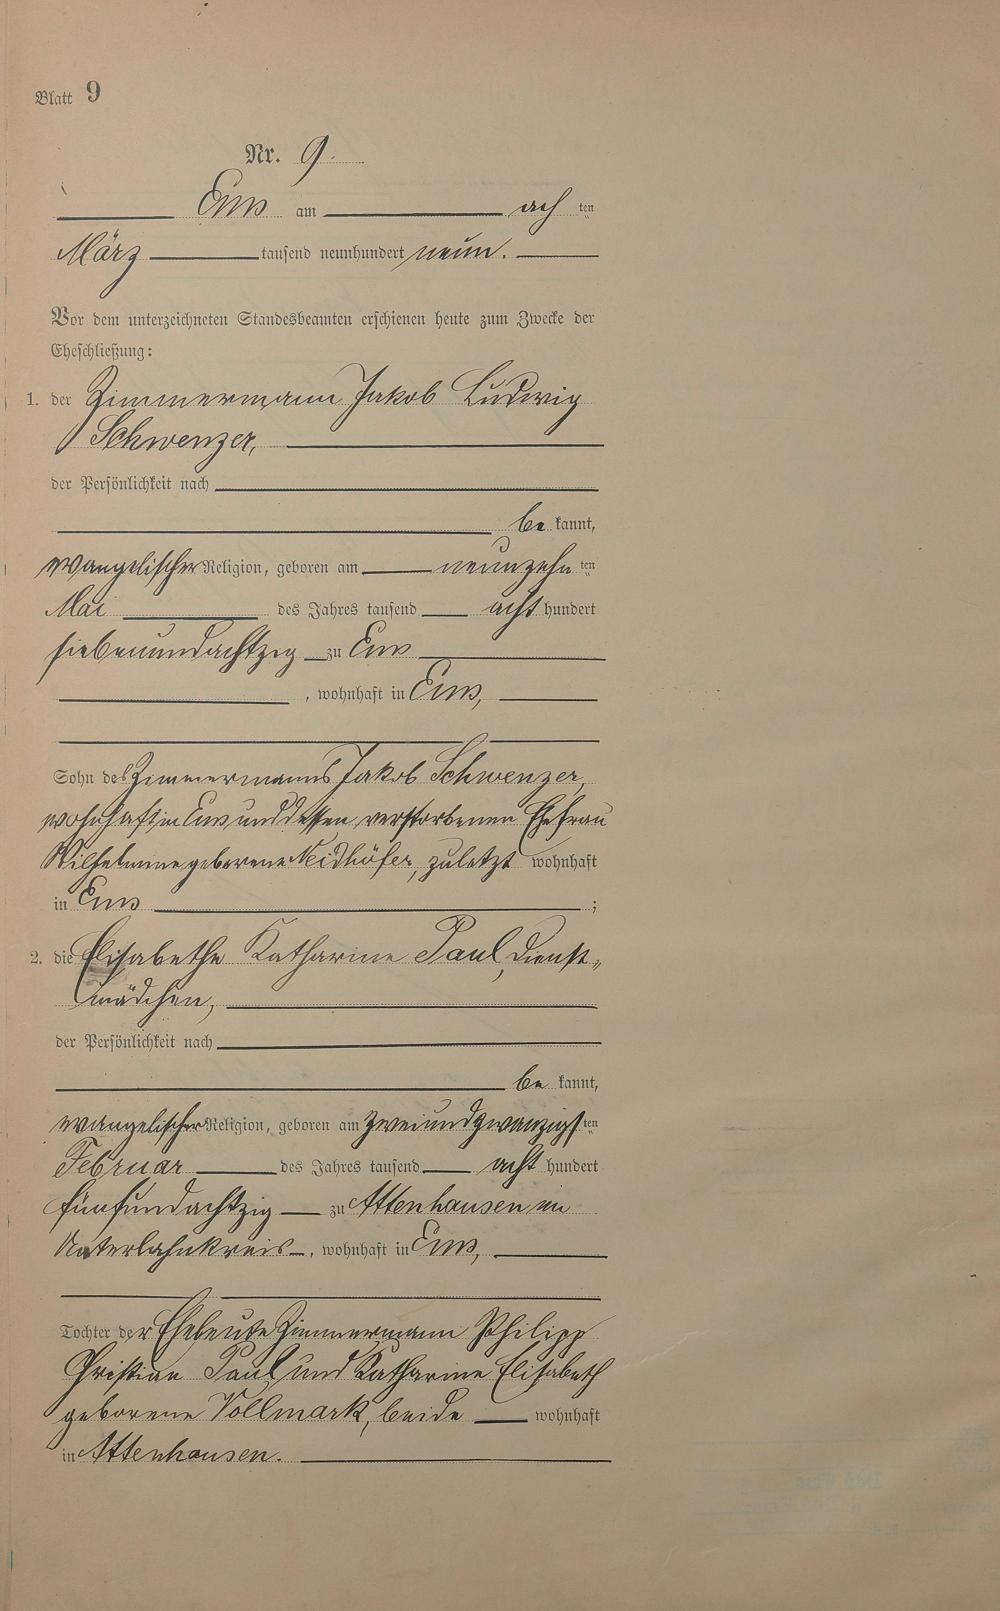 Blatt 9
Nr. 9.
Ems am achten
März tausend neunhundert neun.
Vor dem unterzeichneten Standesbeamten erschienen heute zum Zwecke der
Eheschließung:
1. der Zimmermann Jakob Ludwig
Schwenzer,
der Persönlichkeit nach
bekannt,
evangelischer Religion, geboren am neunzehnten
Mai des Jahres tausend achthundert
siebenundachtzig zu Ems
, wohnhaft in Ems,
Sohn des Zimmermanns Jakob Schwenzer,
wohnhaft in Ems und dessen verstorbenen Ehefrau
Wilhelmine geborene Neidhöfer, zuletzt wohnhaft
in Ems ;
2. die Elisabethe Katharine Paul, Dienst-
mädchen,
der Persönlichkeit nach
bekannt,
evangelischer Religion, geboren am zweiundzwanzigsten
Februar des Jahres tausend achthundert
fünfundachtzig zu Attenhausen im
Unterlahnkreis, wohnhaft in Ems,
Tochter der Eheleute Zimmermann Philipp
Christian Paul und Katharine Elisabeth
geborene Vollmark, beide wohnhaft
in Attenhausen.